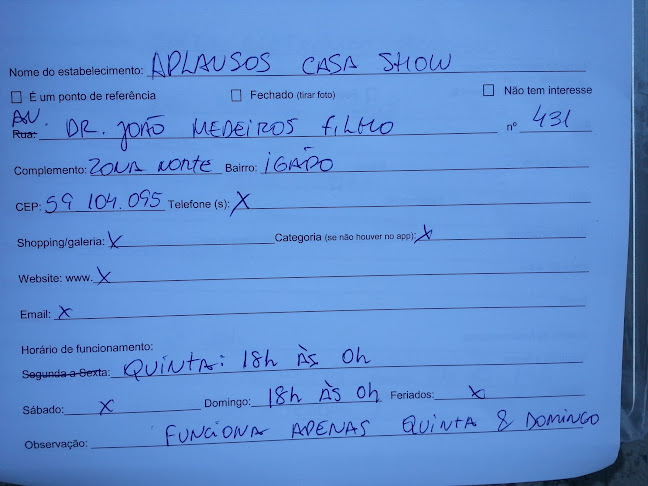 Nome do estabelecimento: APLAUSOS CASA SHOW
☐ É um ponto de referência ☐ Fechado (tirar foto) ☐ Não tem interesse
AV.
Rua: DR. JOÃO MEDEIROS FILHO nº 431
Complemento: ZONA NORTE Bairro: IGAPÓ
CEP: 59 104.095 Telefone (s): X
Shopping/galeria: X Categoria (se não houver no app): X
Website: www. X
Email: X
Horário de funcionamento:
Segunda a Sexta: QUINTA: 18h ÀS 0h
Sábado: X Domingo: 18h ÀS 0h Feriados: X
Observação: FUNCIONA APENAS QUINTA & DOMINGO